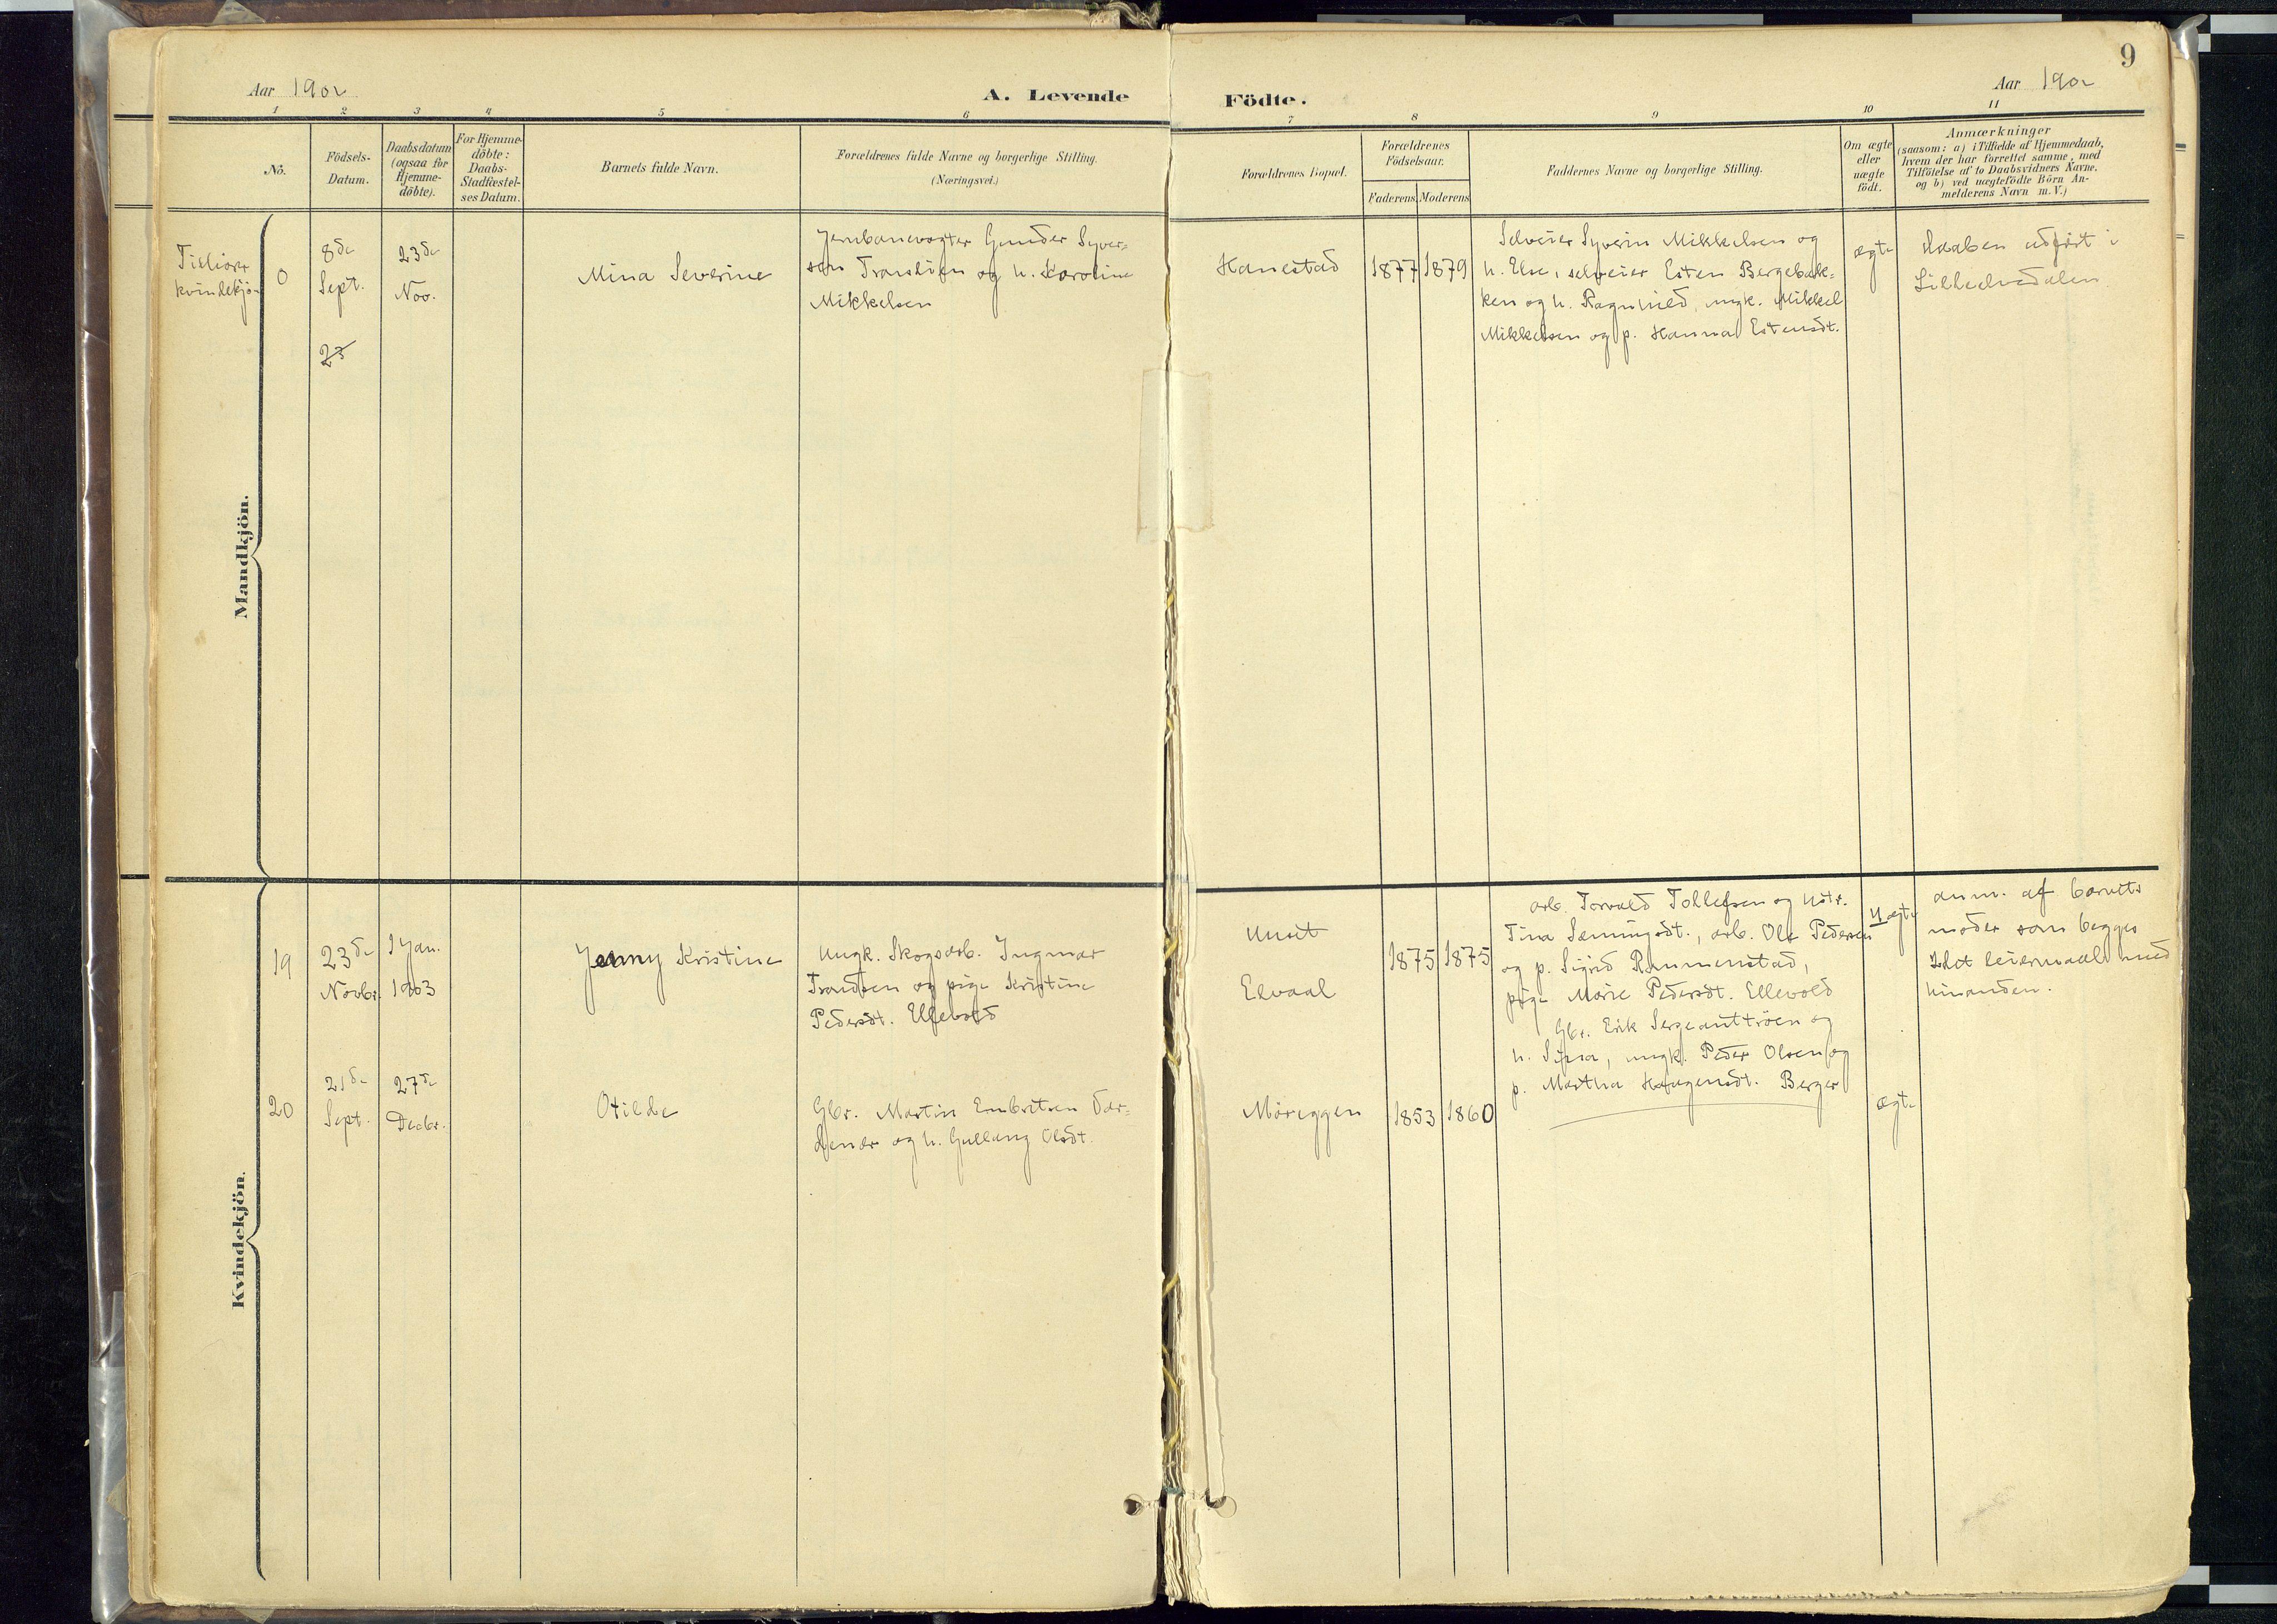 9
Aar 1902
A. Levende
Födte.
Aar 1902
1 2 3 4 5 6 7 8 9 10 11
No.
Födsels-
Datum.
Daabsdatum
(ogsaa for
Hjemme-
döbte).
For Hjemme-
döbte:
Daabs-
Stadfæstel-
ses Datum.
Barnets fulde Navn.
Forældrenes fulde Navne og borgerlige Stilling.
(Næringsvei.)
Forældrenes Bopæl.
Forældrenes
Födselsaar.
Faderens. Moderens
Faddernes Navne og borgerlige Stilling.
Om ægte
eller
uægte
födt.
Anmærkninger
(saasom: a) i Tilfælde af Hjemmedaab,
hvem der har forrettet samme, med
Tilföielse af to Daabsvidners Navne.
og b) ved uægtefödte Börn An-
melderens Navn m. V.)
Mandkjön.
Tilhører
kvindekjön
0
8de
Sept.
23
23de
Nov.
Mina Severine
Jernbanevogter Gunder Syver-
sen og h. Karoline
Mikkelsen
Hanestad
1877 1879
Selveier Syverin Mikkelsen og
h. Else, selveier Esten Bergebak-
ken og h. Ragnhild, ungk. Mikkel
Mikkelsen og p. Hanna Estensdt.
ægte
Daaben udført i
Lilleelvedalen
Kvindekjön.
19
23de
Novbr.
1 Jan.
1903
Jenny Kristine
Ungk. Skogsarb. Ingmar
Trondsen og pige Kristine
Pedersdt. Ellevold
Unset
Elvaal
1875 1875
arb. Torvald Tollefsen og hstr.
Tina Sæmingsdt., arb. Ole Pedersen
og p. Sigrid Rømmenstad,
pige Marie Pedersdt. Ellevold
Uægte
anm. af barnets
moder som begges
1det leiermaal med
hinanden.
20
21de
Sept.
27de
Decbr.
Otilde
Gbr. Martin Embretsen
og h. Gullaug Olsdt.
Møreggen
1853 1860
Gbr. Erik Sergeanttrøen og
h. Signa, ungk. Peder Olsen og
p. Martha Haagensdt. Berger
ægte